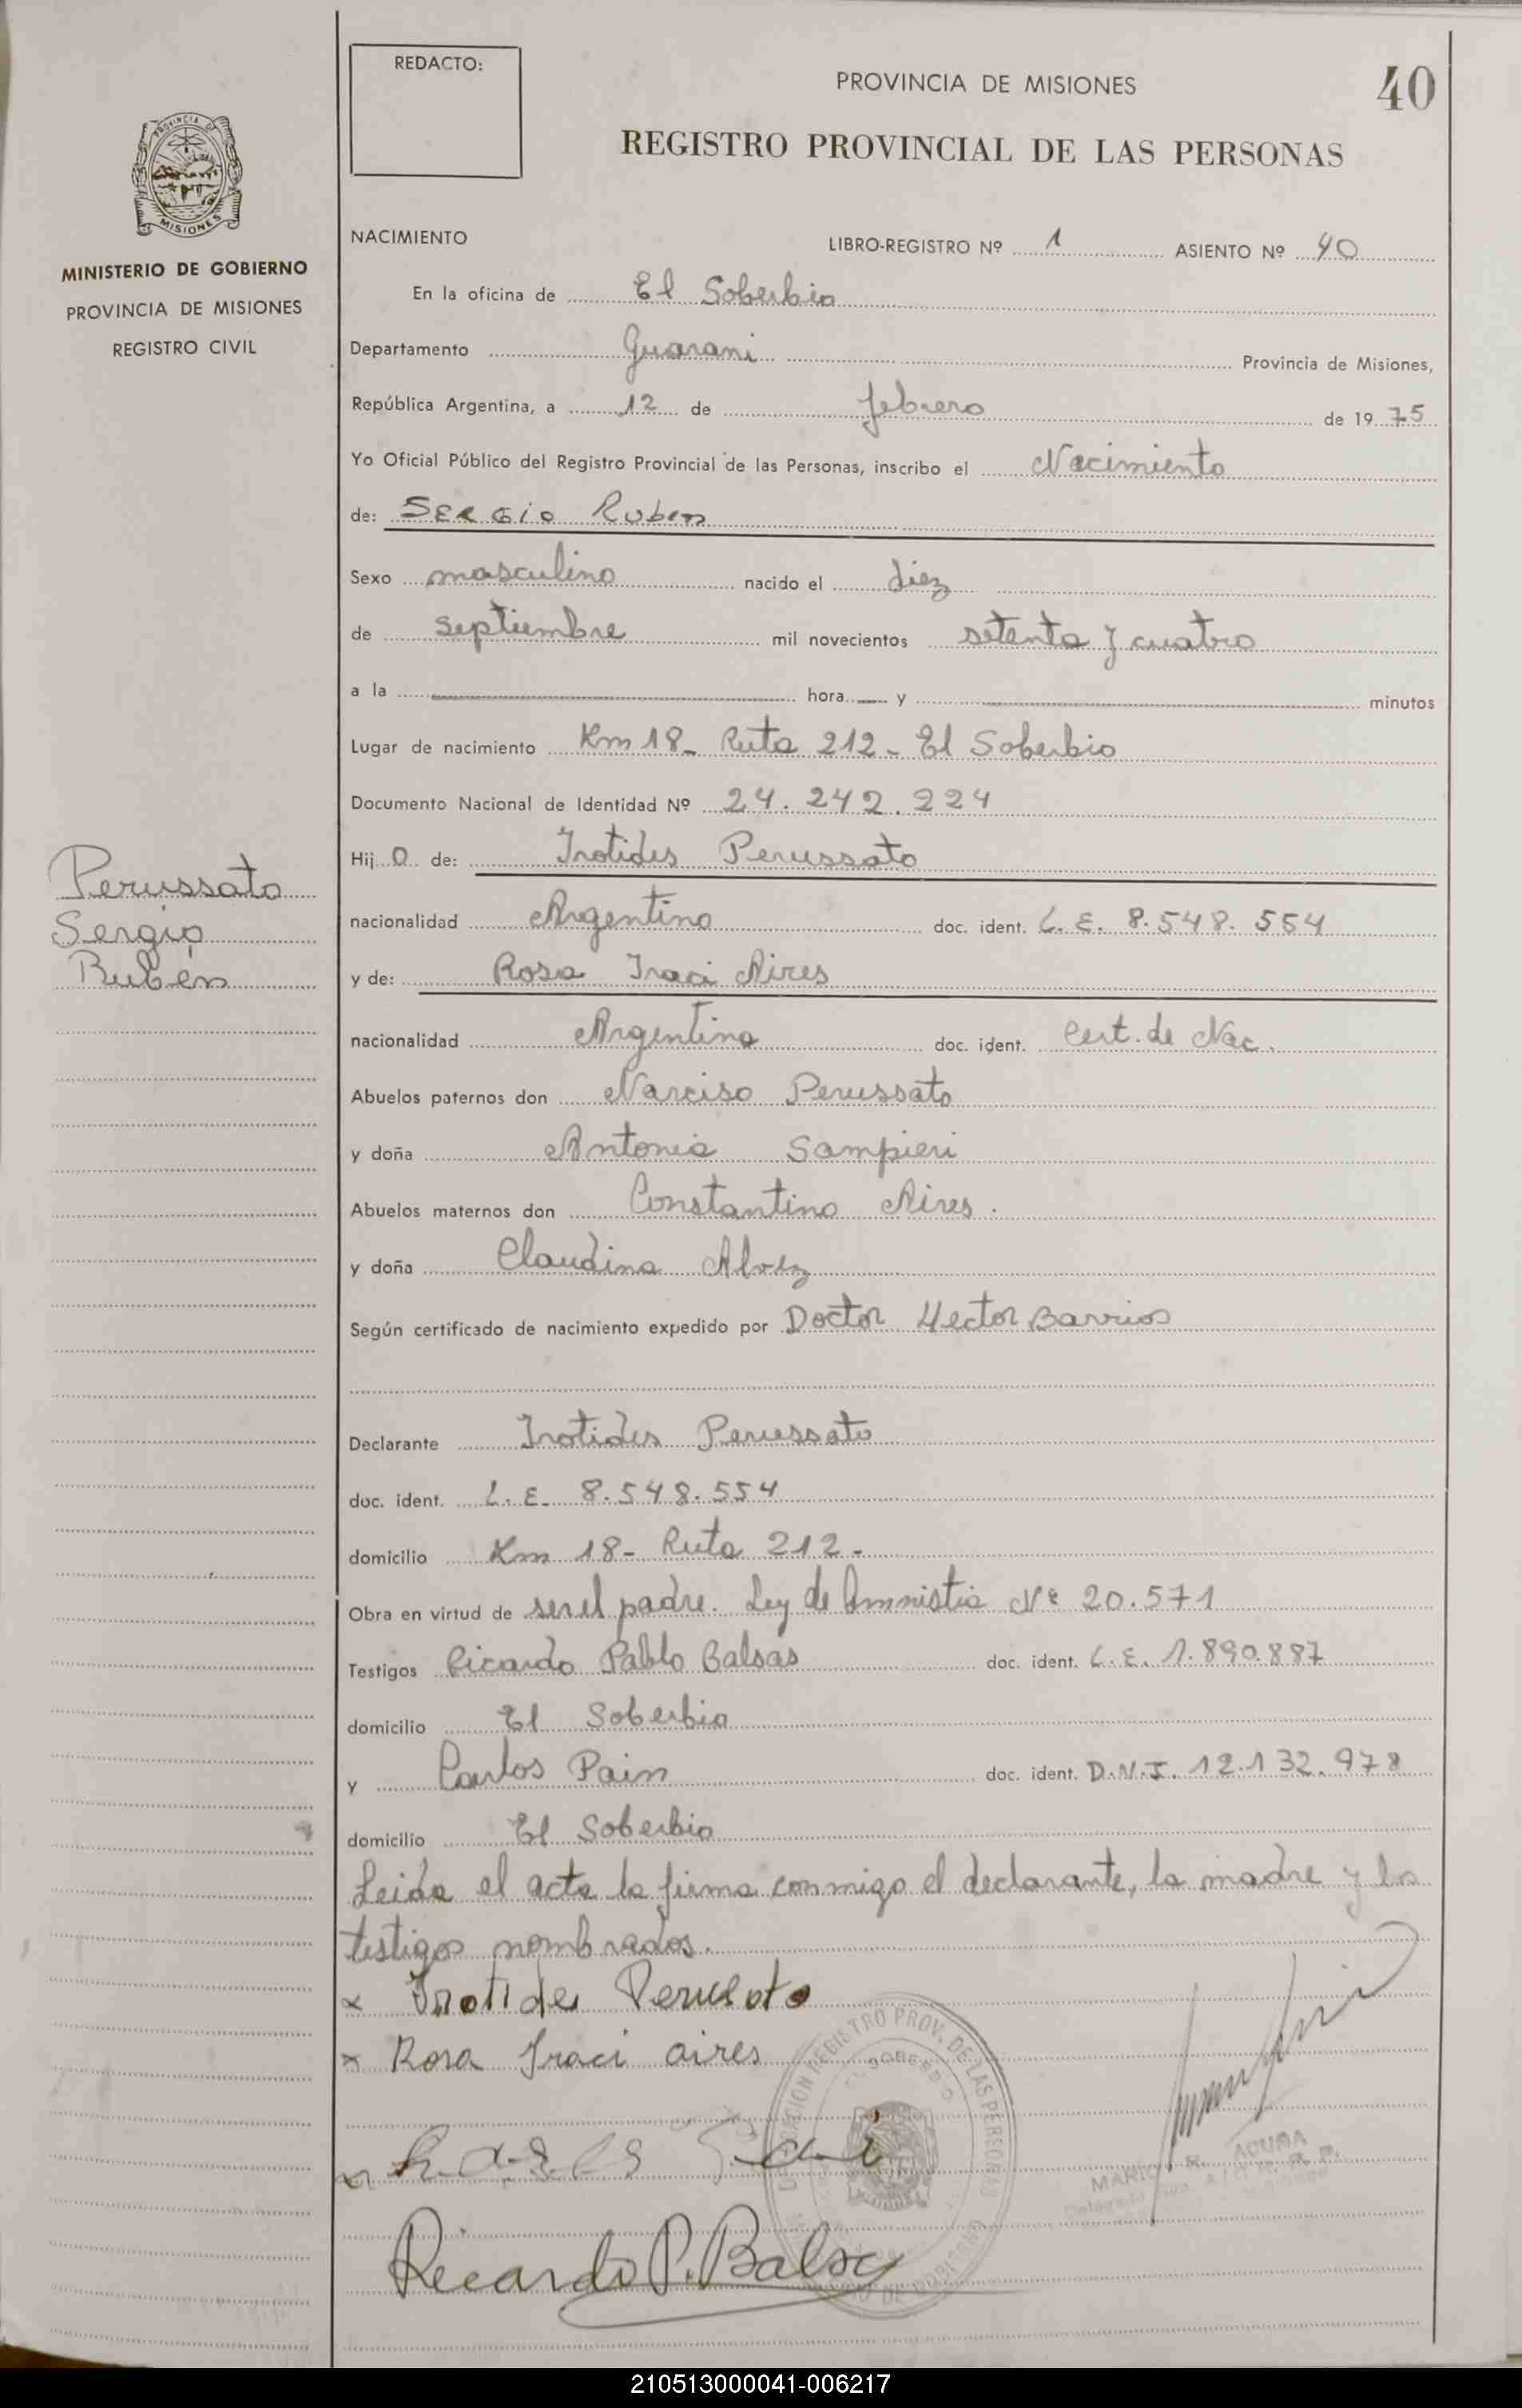 REDACTO:
PROVINCIA DE MISIONES
40
REGISTRO PROVINCIAL DE LAS PERSONAS
PROVINCIA DE
MISIONES
MINISTERIO DE GOBIERNO
PROVINCIA DE MISIONES
REGISTRO CIVIL
NACIMIENTO
LIBRO-REGISTRO Nº 1 ASIENTO Nº 40
En la oficina de El Soberbio
Departamento Guarani Provincia de Misiones,
República Argentina, a 12 de febrero de 1975
Yo Oficial Público del Registro Provincial de las Personas, inscribo el Nacimiento
de: SERGio Ruben
Sexo masculino nacido el diez
de septiembre mil novecientos setenta y cuatro
a la hora y minutos
Lugar de nacimiento Km 18- Ruta 212- El Soberbio
Documento Nacional de Identidad Nº 24.242.224
Hijo de: Irotides Perussato
nacionalidad Argentino doc. ident. L.E. 8.548.554
y de: Rosa Iraci Aires
nacionalidad Argentina doc. ident. Cert. de Nac.
Abuelos paternos don Narciso Perussato
y doña Antonia Sampieri
Abuelos maternos don Constantino Aires.
y doña Claudina Alvez
Según certificado de nacimiento expedido por Doctor Hector Barrios
Declarante Irotides Perussato
doc. ident. L.E. 8.548.554
domicilio Km 18- Ruta 212-
Obra en virtud de ser el padre. Ley de Amnistia Nº 20.571
Testigos Ricardo Pablo Balsas doc. ident. L.E. 1.890.887
domicilio El Soberbio
y Carlos Pain doc. ident. D.N.I. 12.132.978
domicilio El Soberbio
Leida el acta la firma conmigo el declarante, la madre y los
testigos nombrados.
x Irotides Perusoto
x Rosa Iraci aires
Ricardo P. Balsa
Perussato
Sergio
Rubén
REGISTRO PROV. DE LAS PERSONAS
EL SOBERBIO
MARIO R. ACUÑA
210513000041-006217